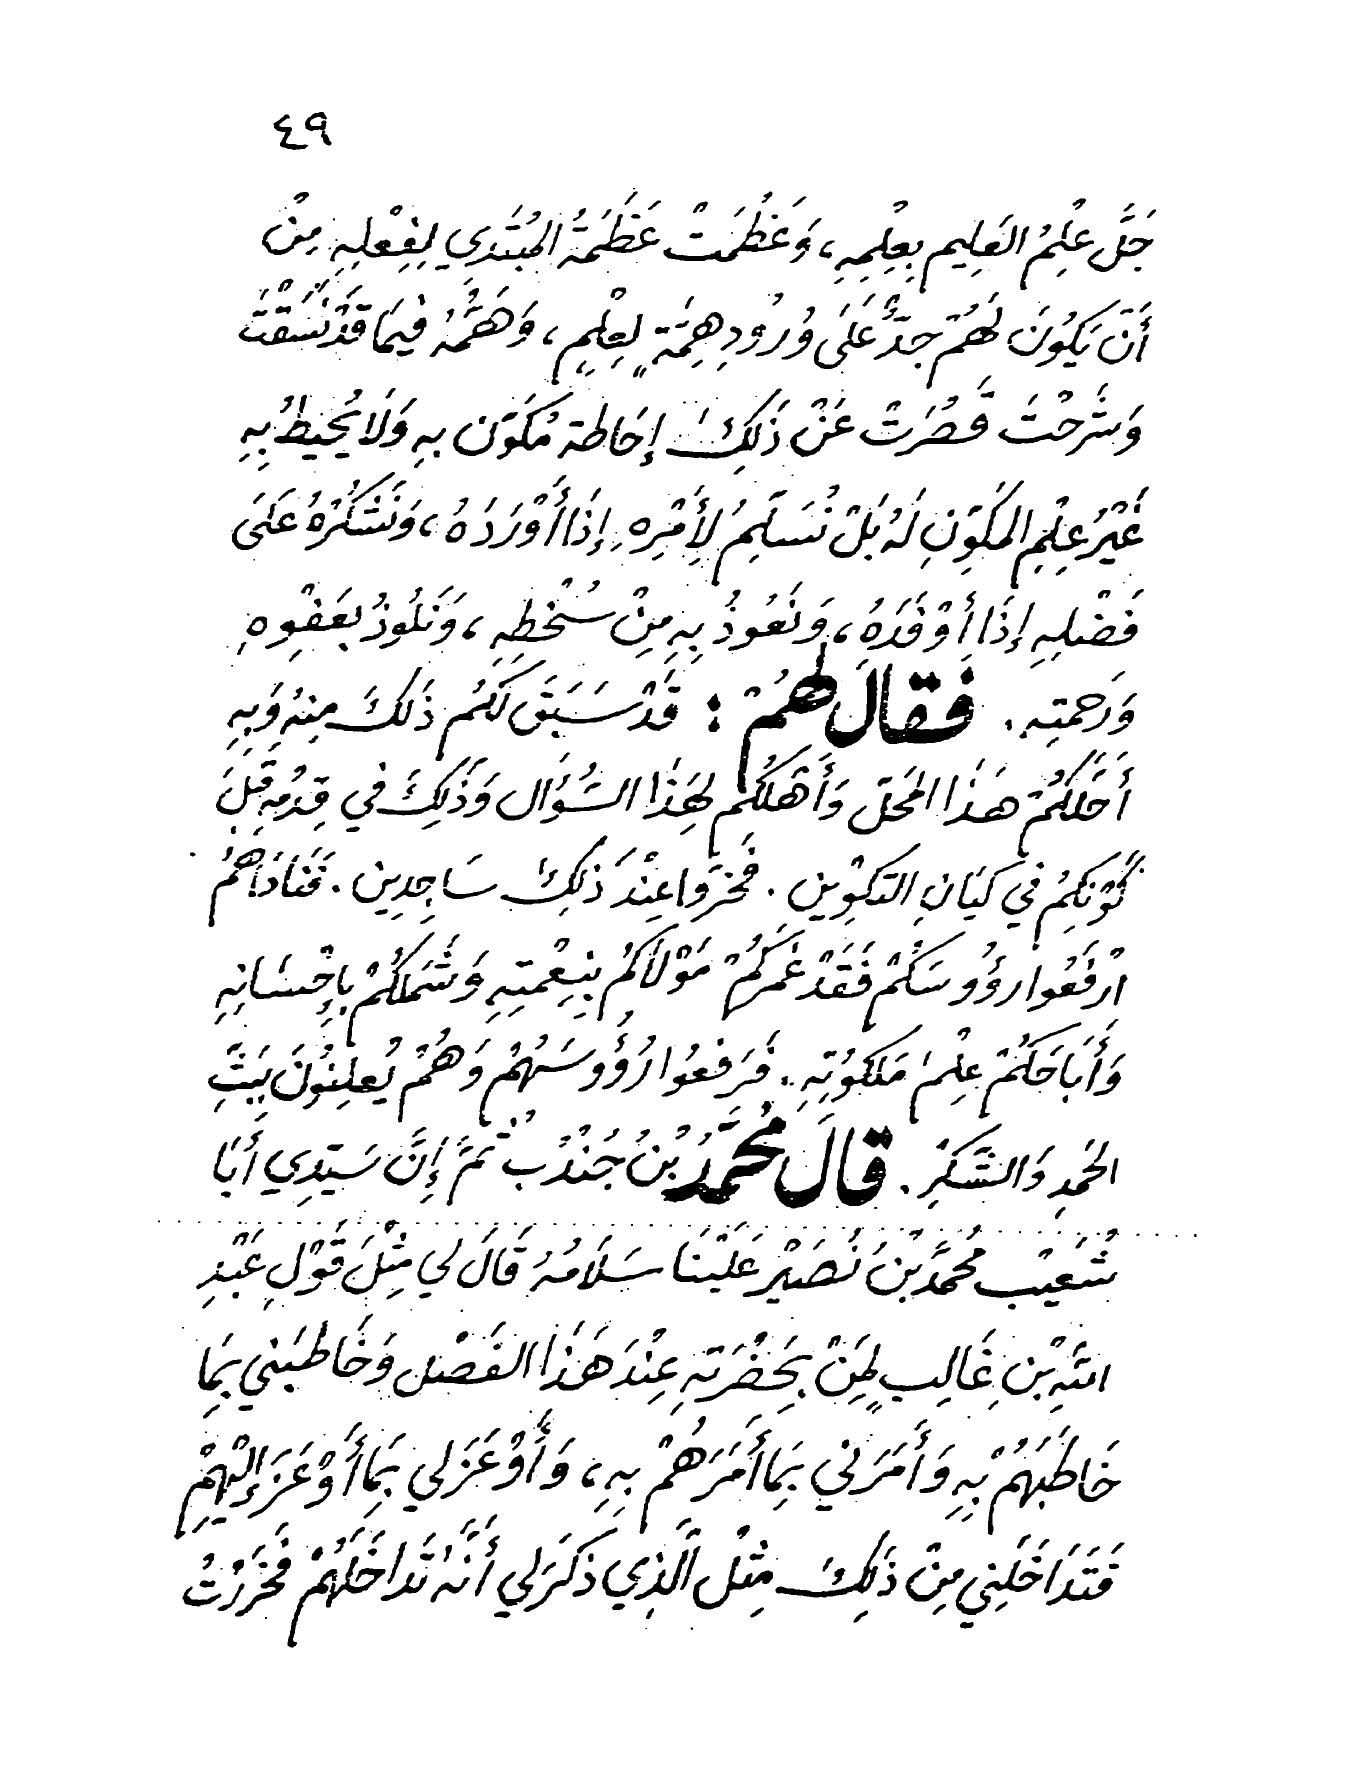 ٤٩
جَلَّ عِلْمُ العَلِيم بِعِلْمِهِ، وَعَظُمَتْ عَظَمَةُ المُبْتَدِي لِفِعْلِهِ مِنْ
أَنْ يَكُونَ لَهُمْ جِدٌّ عَلَى وُرُودِ هِمَّةٍ لِعِلْمٍ، وَهَمُّهُ فِيمَا قَدْ نَسَّقْتَ
وَشَرَحْتَ قَصُرَتْ عَنْ ذَلِكَ إِحَاطة مُكَوَّن بِهِ وَلَا يُحِيطُ بِهِ
غَيْرُ عِلْمِ المكَوِّنِ لَهُ بَلْ نُسَلِّمُ لِأَمْرِهِ إِذَا أَوْرَدَهُ، وَنَشْكُرُهُ عَلَى
فَضْلِهِ إِذَا أَوْفَدَهُ، وَنَعُوذُ بِهِ مِنْ سُخْطِهِ، وَنَلُوذُ بعَفْوِهِ
وَرَحمَتِهِ. فَقَالَ لَهُمْ: قَدْ سَبَقَ لَكُم ذَلكَ مِنهُ وَبِهِ
أَحَلَّكُمْ هذا المَحَلّ وَأَهَّلَكُم لِهَذا السُّؤال وَذَلِكَ في قِدْمِهِ قَبْلَ
كَوْنِكُمْ في كيَانِ التكوِين. فَخرّوا عِنْدَ ذلكَ سَاجِدِين. فَنَادَاهُمُ
ارْفَعُوا رؤُوسَكُمْ فَقَدْ غَمَرَكُمْ مَوْلَاكُمْ بِنِعْمَتِهِ وَشَمَلَكُمْ بِإِحْسَانِهِ
وَأَبَاحَكُمْ عِلْمَ مَلَكُوتِهِ. فَرَفَعُوا رُؤُوسَهُمْ وَهُمْ يُعلِنُونَ بِبَثِّ
الحَمدِ وَالشُّكرِ. قَالَ مُحَمَّدُ بْنُ جُنْدُبْ ثمَّ إِنَّ سَيِّدِي أَبَا
شُعَيْب مُحَمَّدْ بْنُ نُصَيْر عَلَيْنَا سَلَامُهُ قَالَ لي مِثْلَ قَوْلِ عَبْدِ
اللهِ بْنِ غَالِبٍ لِمَنْ بِحَضْرَتِهِ عِنْدَ هَذَا الفَصْل وَخَاطَبَني بِمَا
خَاطَبَهُمْ بِهِ وَأَمَرَني بِمَا أَمَرَهُمْ بِهِ، وَأَوْعَزَ لي بِمَا أَوْعَزَ إِلَيْهِمْ
فَتَدَاخَلَنِي مِنْ ذَلِكَ مِثل الّذِي ذَكَرَ لِي أَنَّهُ تَدَاخَلَهُمْ فَخَرَرْتُ